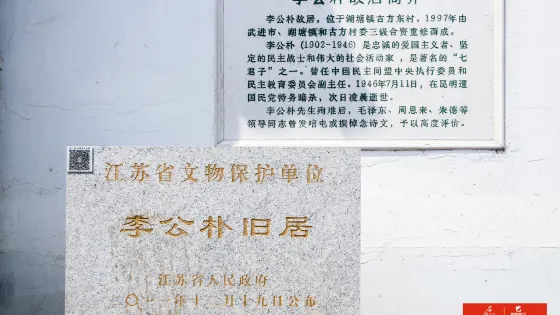 李公朴故居简介
李公朴故居，位于湖塘镇古方东村。1997年由
武进市、湖塘镇和古方村委三级合资重修而成。
李公朴（1902-1946）是忠诚的爱国主义者、坚
定的民主战士和伟大的社会活动家，是著名的“七
君子”之一。曾任中国民主同盟中央执行委员和
民主教育委员会副主任。1946年7月11日，在昆明遭
国民党特务暗杀，次日凌晨逝世。
李公朴先生殉难后，毛泽东、周恩来、朱德等
领导同志曾发唁电或撰悼念诗文，予以高度评价。
江苏省文物保护单位
李公朴旧居
江苏省人民政府
〇一一年十二月十九日公布